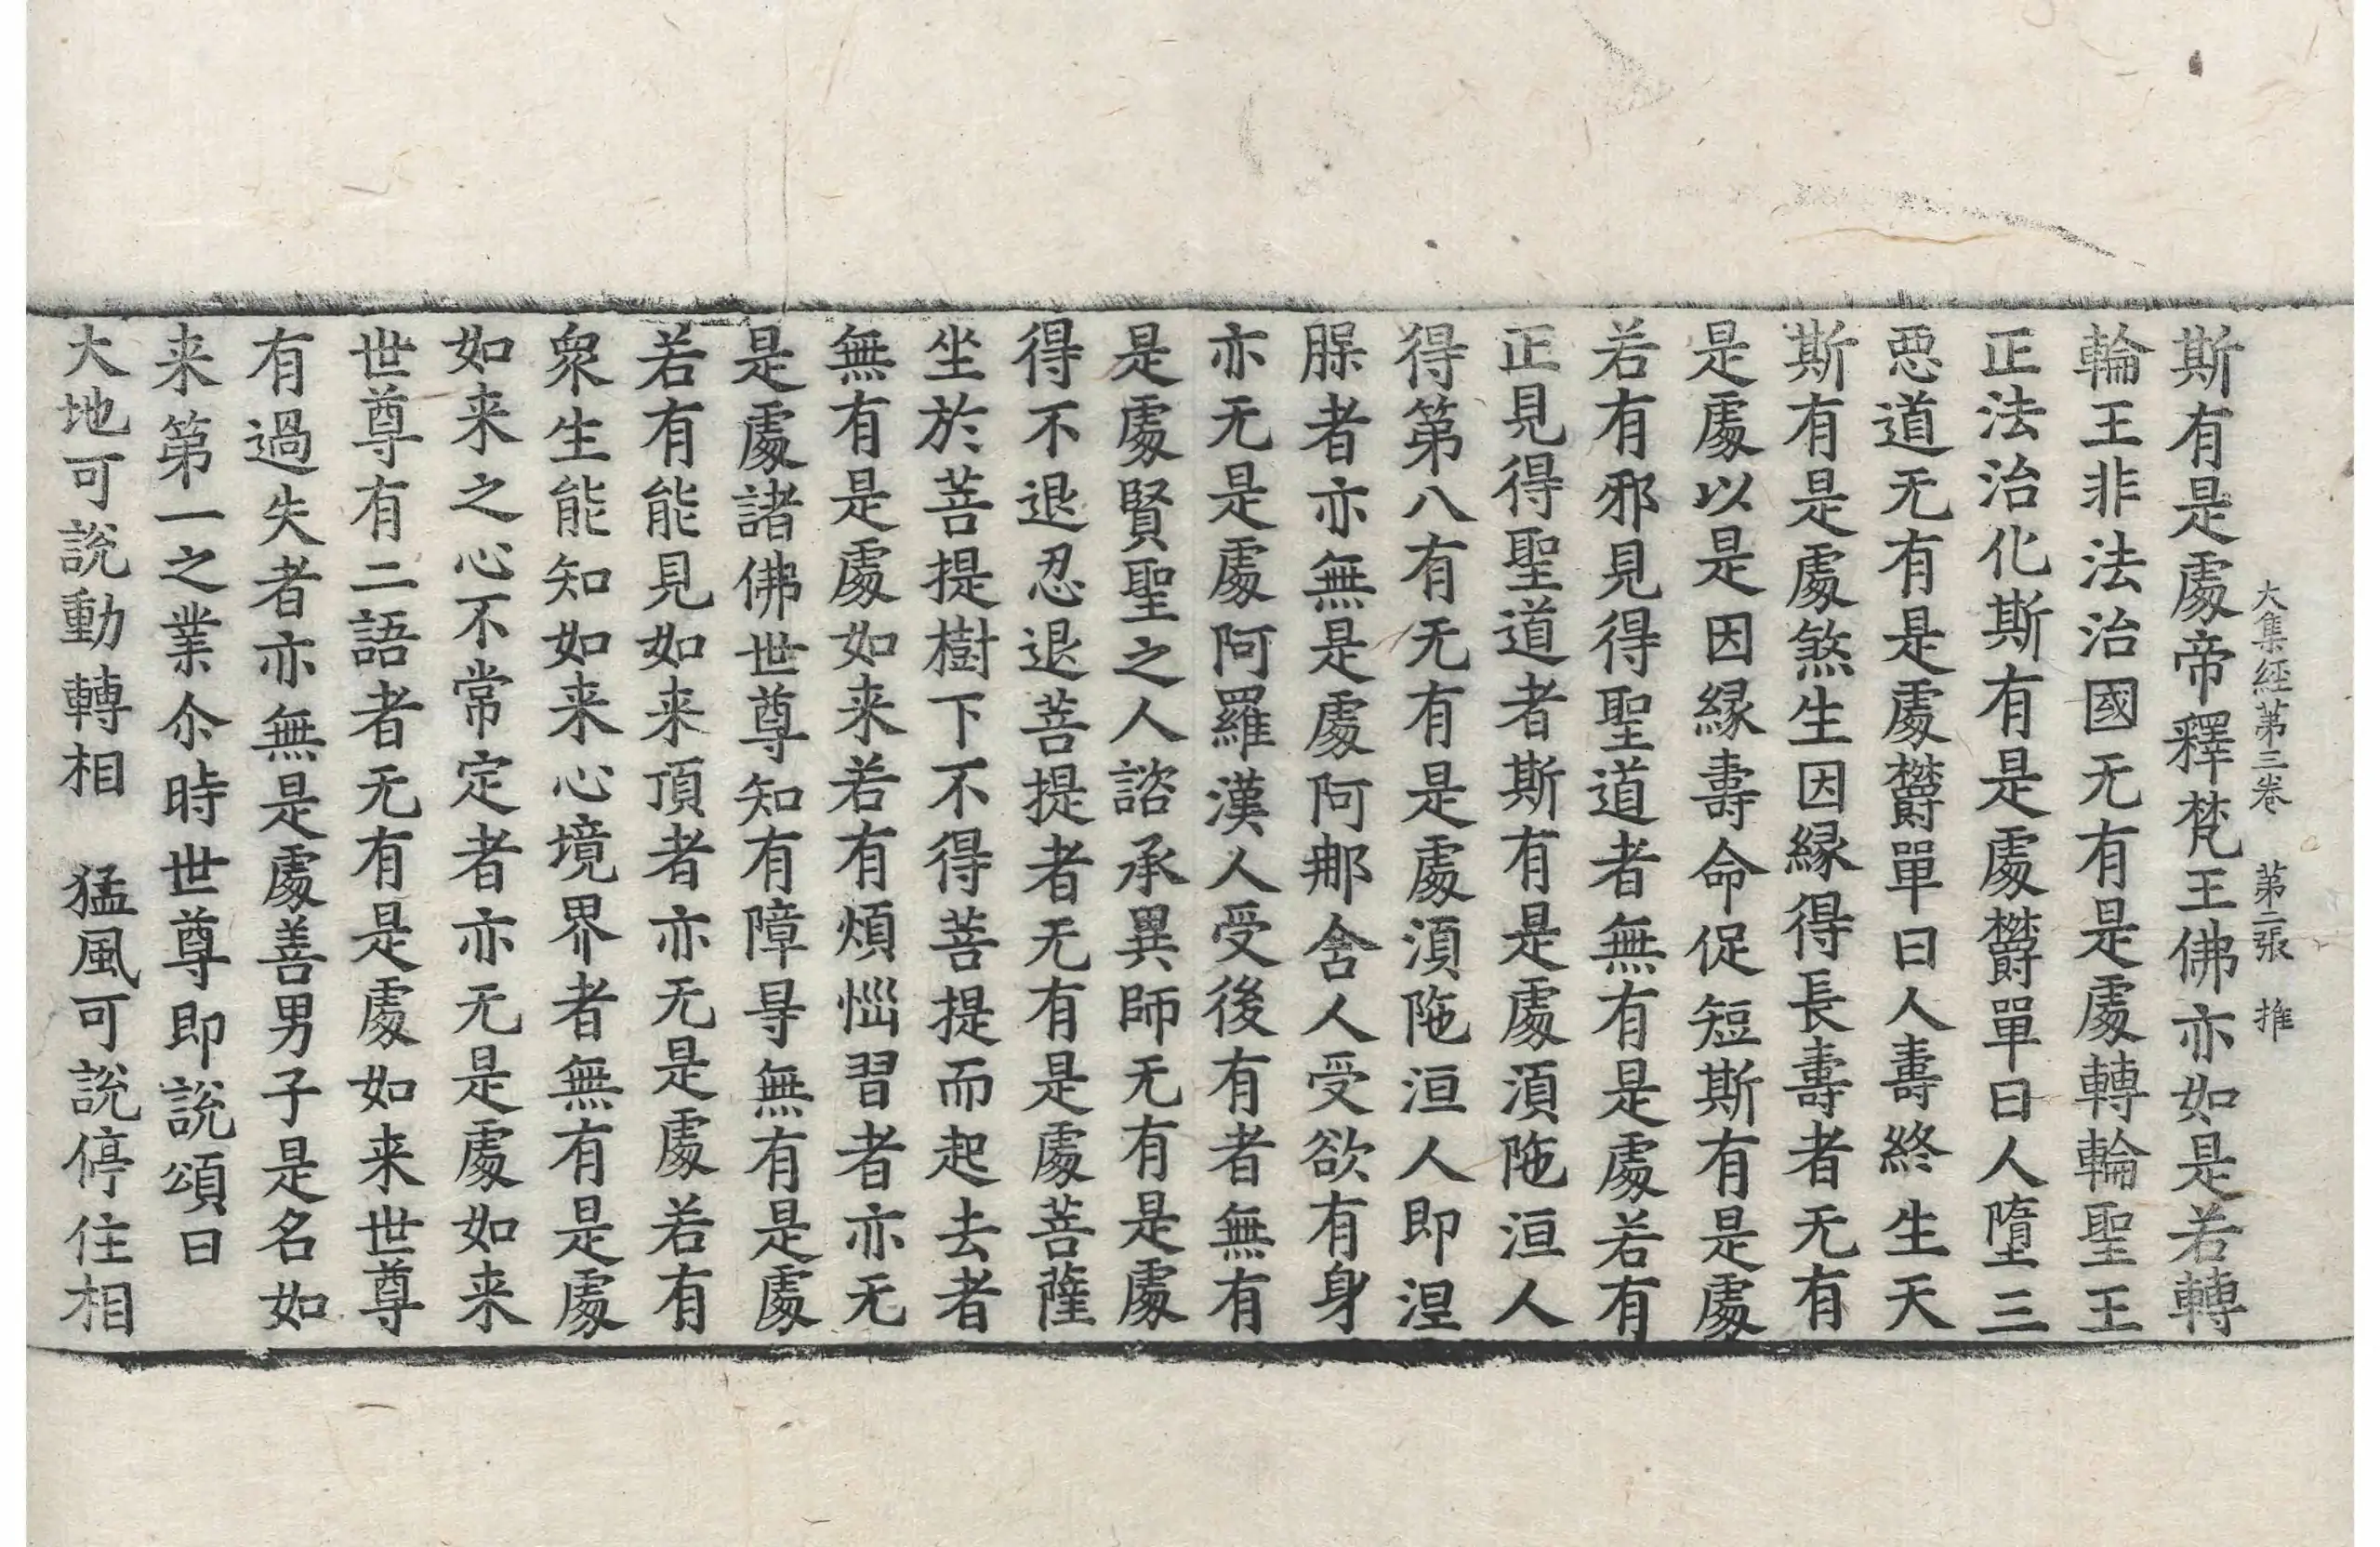 大集經第三卷 第二張 推
斯有是處帝釋梵王佛亦如是若轉
輪王非法治國无有是處轉輪聖王
正法治化斯有是處欝單曰人墮三
惡道无有是處欝單曰人壽終生天
斯有是處煞生因縁得長壽者无有
是處以是因縁壽命促短斯有是處
若有邪見得聖道者無有是處若有
正見得聖道者斯有是處湏陁洹人
得第八有无有是處湏陁洹人即涅
腂者亦無是處阿那舍人受欲有身
亦无是處阿羅漢人受後有者無有
是處賢聖之人諮承異師无有是處
得不退忍退菩提者无有是處菩薩
坐於菩提樹下不得菩提而起去者
無有是處如来若有煩惱習者亦无
是處諸佛世尊知有障㝵無有是處
若有能見如来頂者亦无是處若有
衆生能知如来心境界者無有是處
如来之心不常定者亦无是處如来
世尊有二語者无有是處如来世尊
有過失者亦無是處善男子是名如
来第一之業尒時世尊即說頌曰
大地可說動轉相 猛風可說停住相